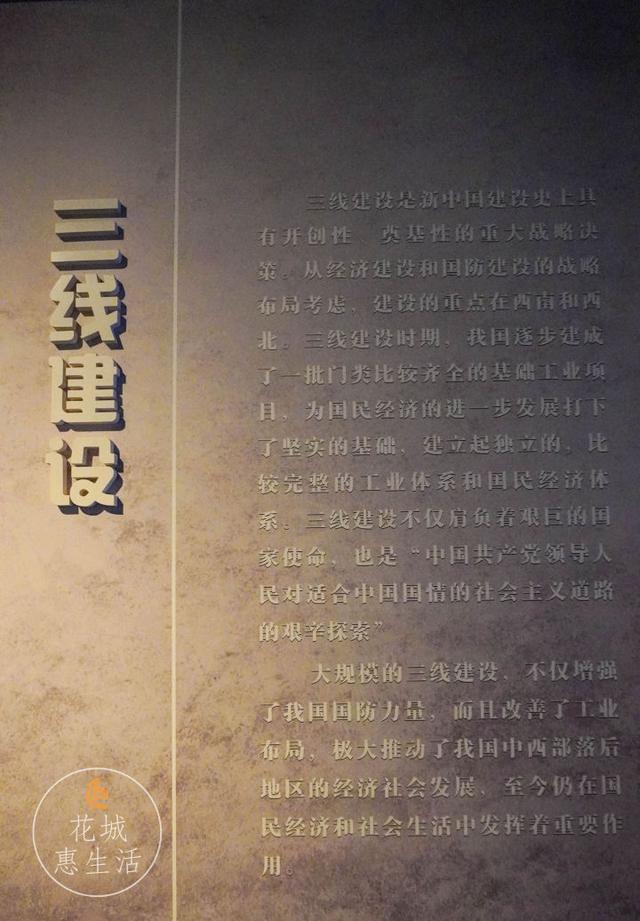 三线建设
三线建设是新中国建设史上具
有开创性、奠基性的重大战略决
策。从经济建设和国防建设的战略
布局考虑，建设的重点在西南和西
北。三线建设时期，我国逐步建成
了一批门类比较齐全的基础工业项
目，为国民经济的进一步发展打下
了坚实的基础，建立起独立的，比
较完整的工业体系和国民经济体
系。三线建设不仅肩负着艰巨的国
家使命，也是“中国共产党领导人
民对适合中国国情的社会主义道路
的艰辛探索”
大规模的三线建设，不仅增强
了我国国防力量，而且改善了工业
布局，极大推动了我国中西部落后
地区的经济社会发展，至今仍在国
民经济和社会生活中发挥着重要作
用。
花城
惠生活